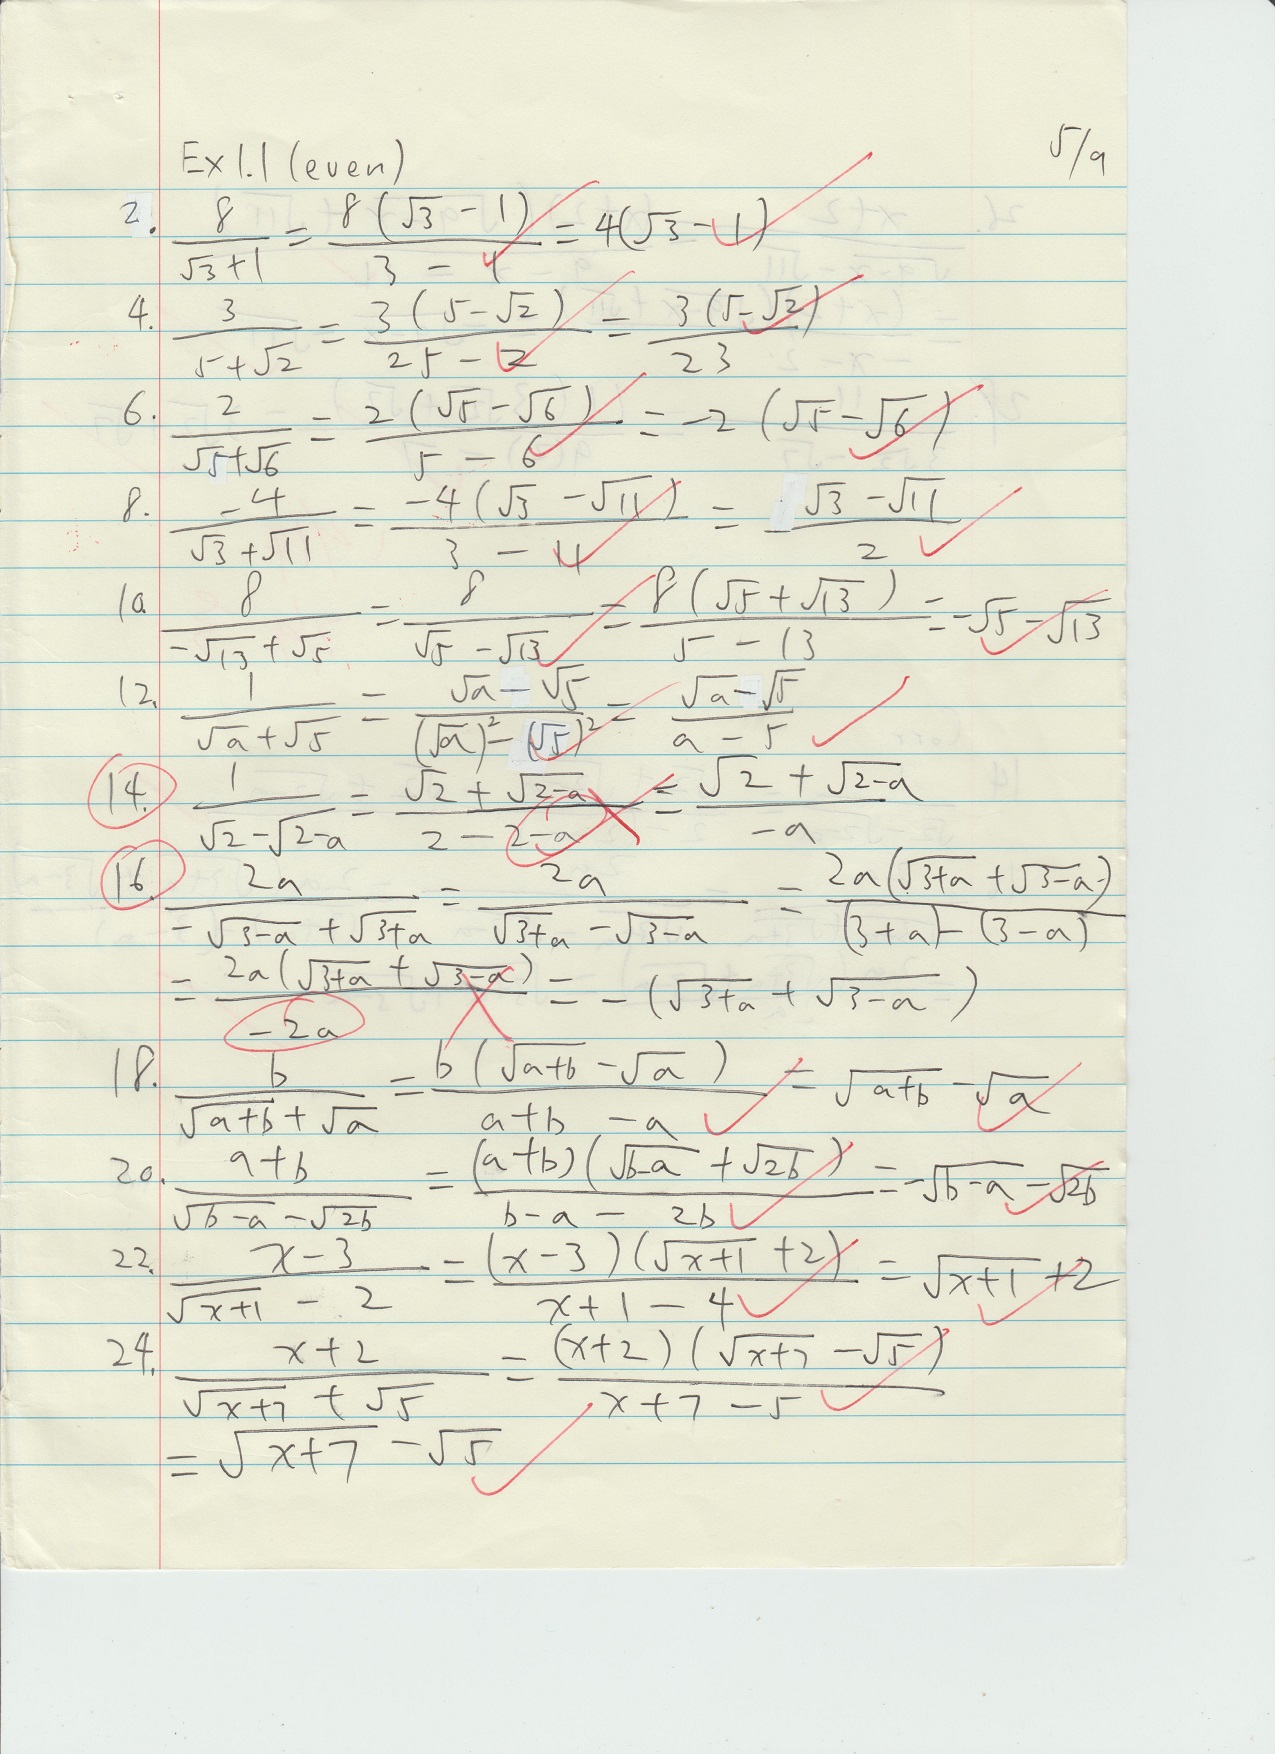 5/9
Ex 1.1 (even)
2. 8/(√3+1) = 8(√3 - 1)/(3 - 1) = 4(√3 - 1)
4. 3/(5+√2) = 3(5-√2)/(25 - 2) = 3(5-√2)/23
6. 2/(√5+√6) = 2(√5 - √6)/(5 - 6) = -2(√5 - √6)
8. -4/(√3+√11) = -4(√3 - √11)/(3 - 11) = (√3 - √11)/2
10 8/(-√13+√5) = 8/(√5 - √13) = 8(√5 + √13)/(5 - 13) = -√5 - √13
12. 1/(√a+√5) = (√a - √5)/((√a)² - (√5)²) = (√a - √5)/(a - 5)
14. 1/(√2 - √(2-a)) = (√2 + √(2-a))/(2 - 2-a) = (√2 + √(2-a))/(-a)
16. 2a/(-√(3-a) + √(3+a)) = 2a/(√(3+a) - √(3-a)) = 2a(√(3+a) + √(3-a))/((3+a) - (3-a))
= 2a(√(3+a) + √(3-a))/(-2a) = -(√(3+a) + √(3-a))
18. b/(√(a+b) + √a) = b(√(a+b) - √a)/(a+b - a) = √(a+b) - √a
20. (a+b)/(√(b-a) - √(2b)) = (a+b)(√(b-a) + √(2b))/(b-a - 2b) = -√(b-a) - √(2b)
22. (x-3)/(√(x+1) - 2) = (x-3)(√(x+1) + 2)/(x+1-4) = √(x+1) + 2
24. (x+2)/(√(x+7) + √5) = (x+2)(√(x+7) - √5)/(x+7-5)
= √(x+7) - √5